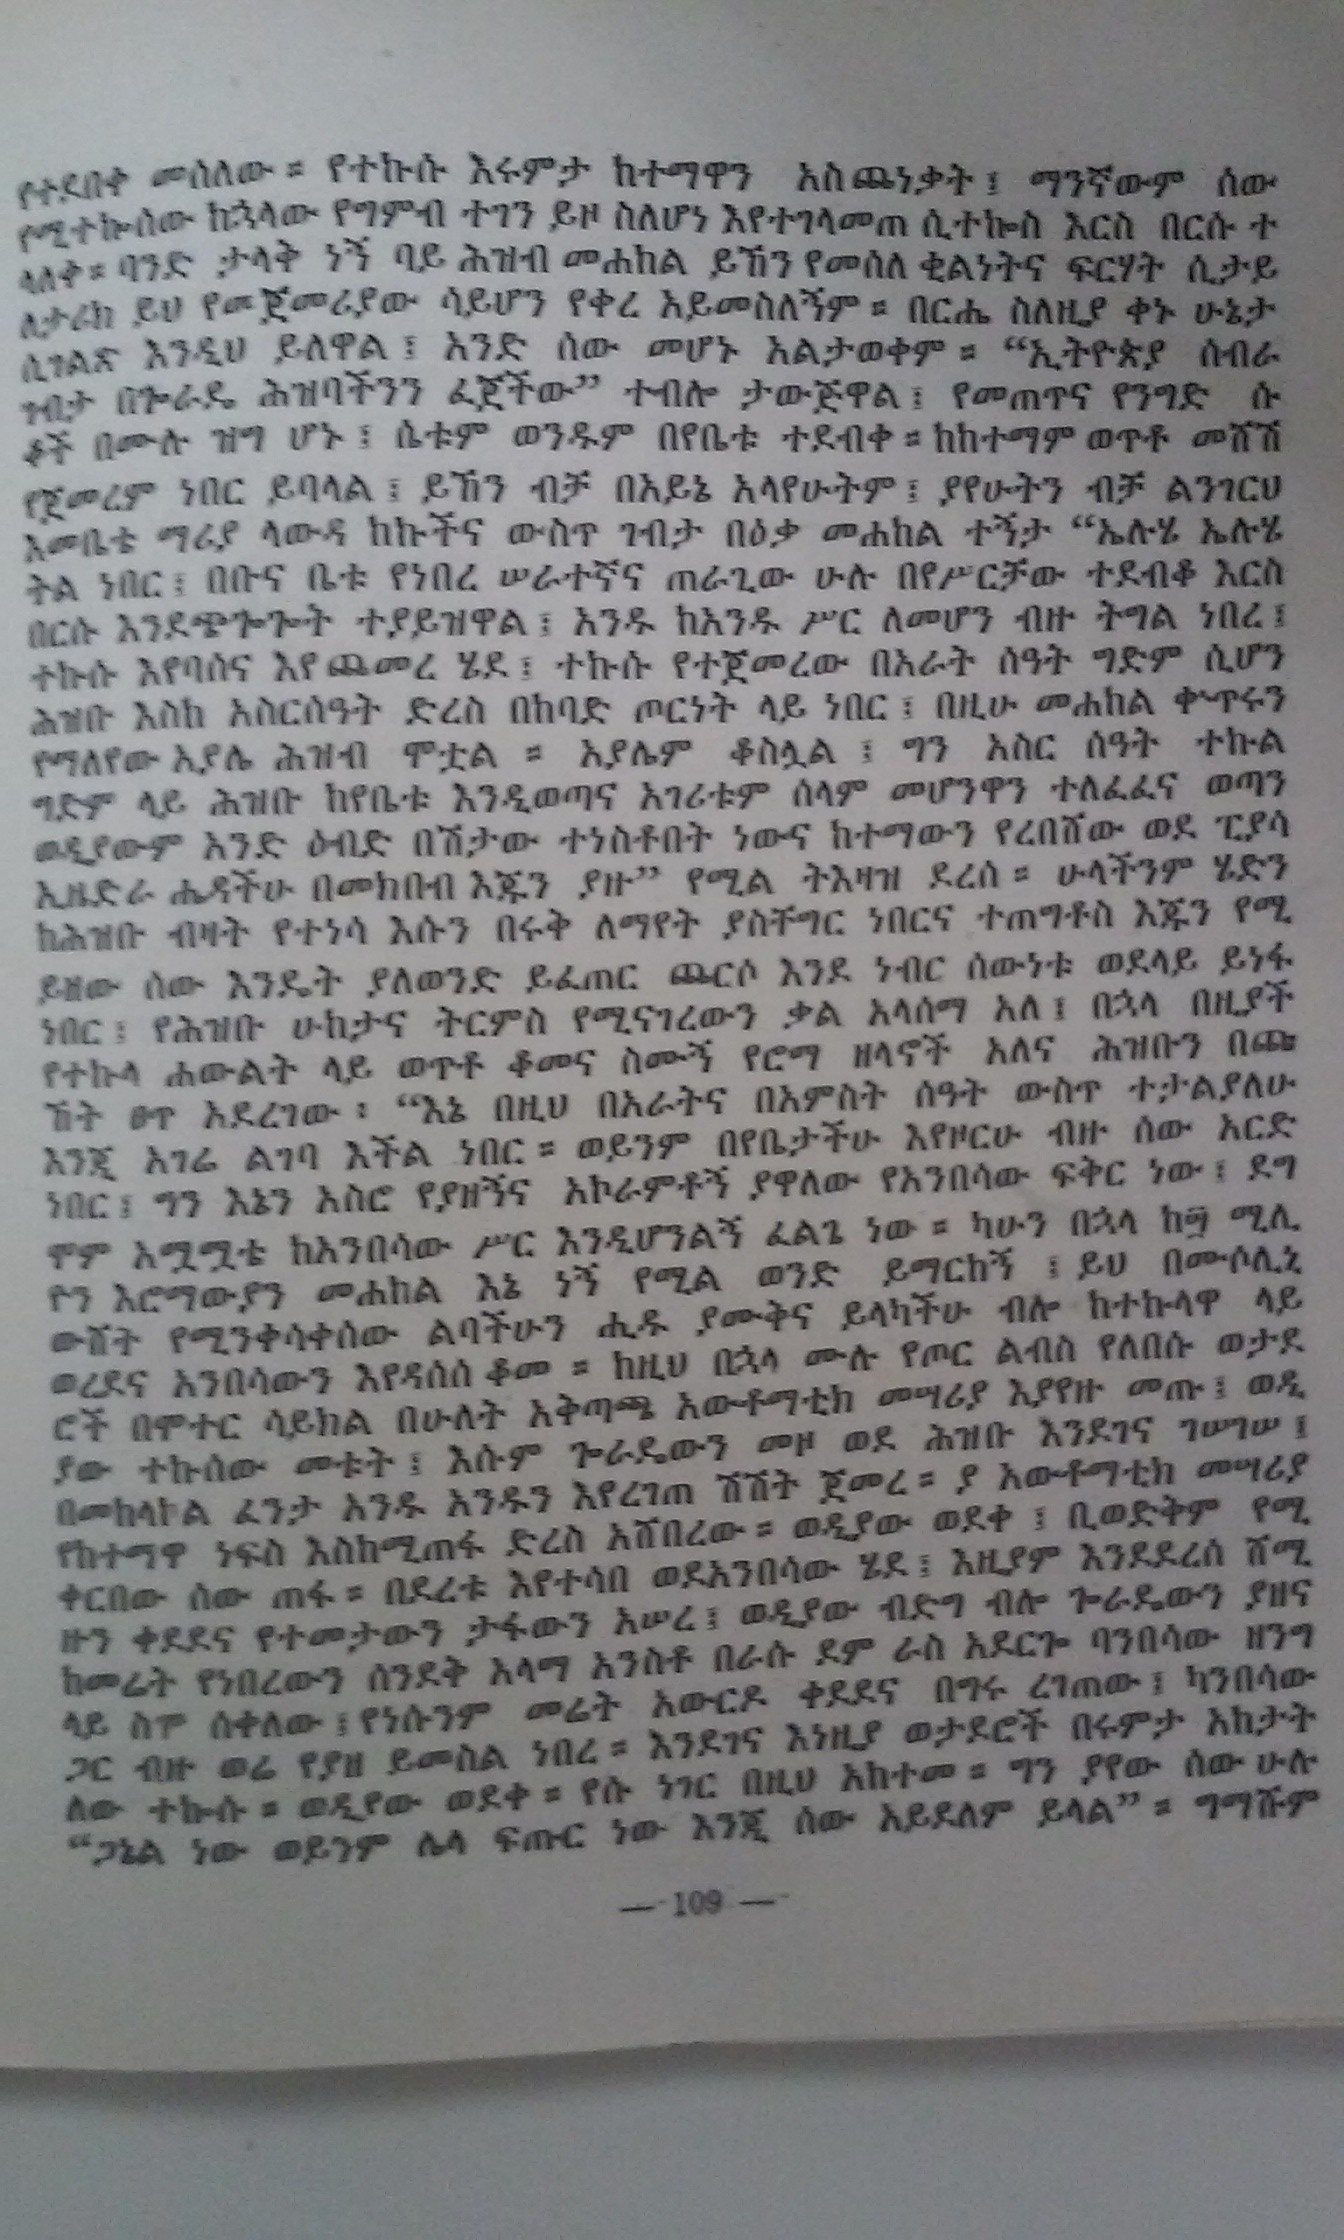 የተደበቀ መሰለው ። የተኩሱ እሩምታ ከተማዋን አስጨነቃት ፤ ማንኛውም ሰው
የሚተኩሰው ከኋላው የግምብ ተገን ይዞ ስለሆነ እየተገላመጠ ሲተኩስ እርስ በርሱ ተ
ላለቀ ። ባንድ ታላቅ ነኝ ባይ ሕዝብ መሐከል ይኸን የመሰለ ቂልነትና ፍርሃት ሲታይ
ለታሪክ ይህ የመጀመሪያው ሳይሆን የቀረ አይመስለኝም ። በርሔ ስለዚያ ቀኑ ሁኔታ
ሲገልጽ እንዲህ ይለዋል ፤ አንድ ሰው መሆኑ አልታወቀም ። “ኢትዮጵያ ሰብራ
ገብታ በጐራዴ ሕዝባችንን ፈጀችው” ተብሎ ታውጅዋል ፤ የመጠጥና የንግድ ሱ
ቆች በሙሉ ዝግ ሆኑ ፤ ሴቱም ወንዱም በየቤቱ ተደብቀ ። ከከተማም ወጥቶ መሸሽ
የጀመረም ነበር ይባላል ፤ ይኸን ብቻ በአይኔ አላየሁትም ፤ ያየሁትን ብቻ ልንገርህ
እመቤቴ ማሪያ ላውዳ ከኩችና ውስጥ ገብታ በዕቃ መሐከል ተኝታ “ኤሉሄ ኤሉሄ
ትል ነበር ፤ በቡና ቤቱ የነበረ ሠራተኛና ጠራጊው ሁሉ በየሥርቻው ተደብቆ እርስ
በርሱ እንደጭጐጐት ተያይዝዋል ፤ አንዱ ከአንዱ ሥር ለመሆን ብዙ ትግል ነበረ ፤
ተኩሱ እየባሰና እየጨመረ ሄደ ፤ ተኩሱ የተጀመረው በአራት ሰዓት ግድም ሲሆን
ሕዝቡ እስከ አስርሰዓት ድረስ በከባድ ጦርነት ላይ ነበር ፤ በዚሁ መሐከል ቍጥሩን
የማለየው እያሌ ሕዝብ ሞቷል ። እያሌም ቆስሏል ፤ ግን አስር ሰዓት ተኩል
ግድም ላይ ሕዝቡ ከየቤቱ እንዲወጣና አገሪቱም ሰላም መሆንዋን ተለፈፈና ወጣን
ወዲያውም አንድ ዕብድ በሽታው ተነስቶበት ነውና ከተማውን የረበሸው ወደ ፒያሳ
ኢዜድራ ሔዳችሁ በመክበብ እጁን ያዙ” የሚል ትእዛዝ ደረሰ ። ሁላችንም ሄድን
ከሕዝቡ ብዛት የተነሳ እሱን በሩቅ ለማየት ያስቸግር ነበርና ተጠግቶስ እጁን የሚ
ይዘው ሰው እንዴት ያለወንድ ይፈጠር ጨርሶ እንደ ነብር ሰውነቱ ወደላይ ይነፋ
ነበር ፤ የሕዝቡ ሁከታና ትርምስ የሚናገረውን ቃል አላሰማ አለ ፤ በኋላ በዚያች
የተኩላ ሐውልት ላይ ወጥቶ ቆመና ስሙኝ የሮማ ዘላኖች አለና ሕዝቡን በጩ
ኸት ፀጥ አደረገው ፡ “እኔ በዚህ በአራትና በአምስት ሰዓት ውስጥ ተታልያለሁ
እንጂ አገሬ ልገባ እችል ነበር ። ወይንም በየቤታችሁ እየዞርሁ ብዙ ሰው አርድ
ነበር ፤ ግን እኔን አስሮ የያዘኝና አኮራምቶኝ ያዋለው የአንበሳው ፍቅር ነው ፤ ደግ
ሞም አሟሟቴ ከአንበሳው ሥር እንዲሆንልኝ ፈልጌ ነው ። ካሁን በኋላ ከ፵ ሚሊ
ዮን እሮማውያን መሐከል እኔ ነኝ የሚል ወንድ ይማርከኝ ፤ ይህ በሙሶሊኒ
ውሸት የሚንቀሳቀሰው ልባችሁን ሒዱ ያሙቅና ይላካችሁ ብሎ ከተኩላዋ ላይ
ወረደና አንበሳውን እየዳሰሰ ቆመ ። ከዚህ በኋላ ሙሉ የጦር ልብስ የለበሱ ወታደ
ሮች በሞተር ሳይክል በሁለት አቅጣጫ አውቶማቲክ መሣሪያ እያየዙ መጡ ፤ ወዲ
ያው ተኩሰው መቱት ፤ እሱም ጐራዴውን መዞ ወደ ሕዝቡ እንደገና ገሠገሠ ፤
በመከላከል ፈንታ አንዱ አንዱን እየረገጠ ሽሽት ጀመረ ። ያ አውቶማቲክ መሣሪያ
የከተማዋ ነፍስ እስከሚጠፋ ድረስ አሸበረው ። ወዲያው ወደቀ ፤ ቢወድቅም የሚ
ቀርበው ሰው ጠፋ ። በደረቱ እየተሳበ ወደአንበሳው ሄደ ፤ እዚያም እንደደረሰ ሸሚ
ዙን ቀደደና የተመታውን ታፋውን አሠረ ፤ ወዲያው ብድግ ብሎ ጐራዴውን ያዘና
ከመሬት የነበረውን ሰንደቅ አላማ አንስቶ በራሱ ደም ራስ አደርጐ ባንበሳው ዘንግ
ላይ ስሞ ሰቀለው ፤ የነሱንም መሬት አውርዶ ቀደደና በግሩ ረገጠው ፤ ካንበሳው
ጋር ብዙ ወሬ የያዘ ይመስል ነበረ ። እንደገና እነዚያ ወታደሮች በሩምታ አከታት
ለው ተኩሱ ። ወዲያው ወደቀ ። የሱ ነገር በዚህ አከተመ ። ግን ያየው ሰው ሁሉ
“ጋኔል ነው ወይንም ሌላ ፍጡር ነው እንጂ ሰው አይደለም ይላል” ። ግማሹም
— 109 —